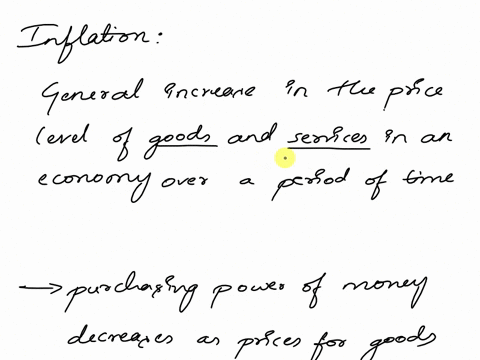 Inflation:
General increase in the price
level of goods and services in an
economy over a period of time
→ purchasing power of money
decreases as prices for goods